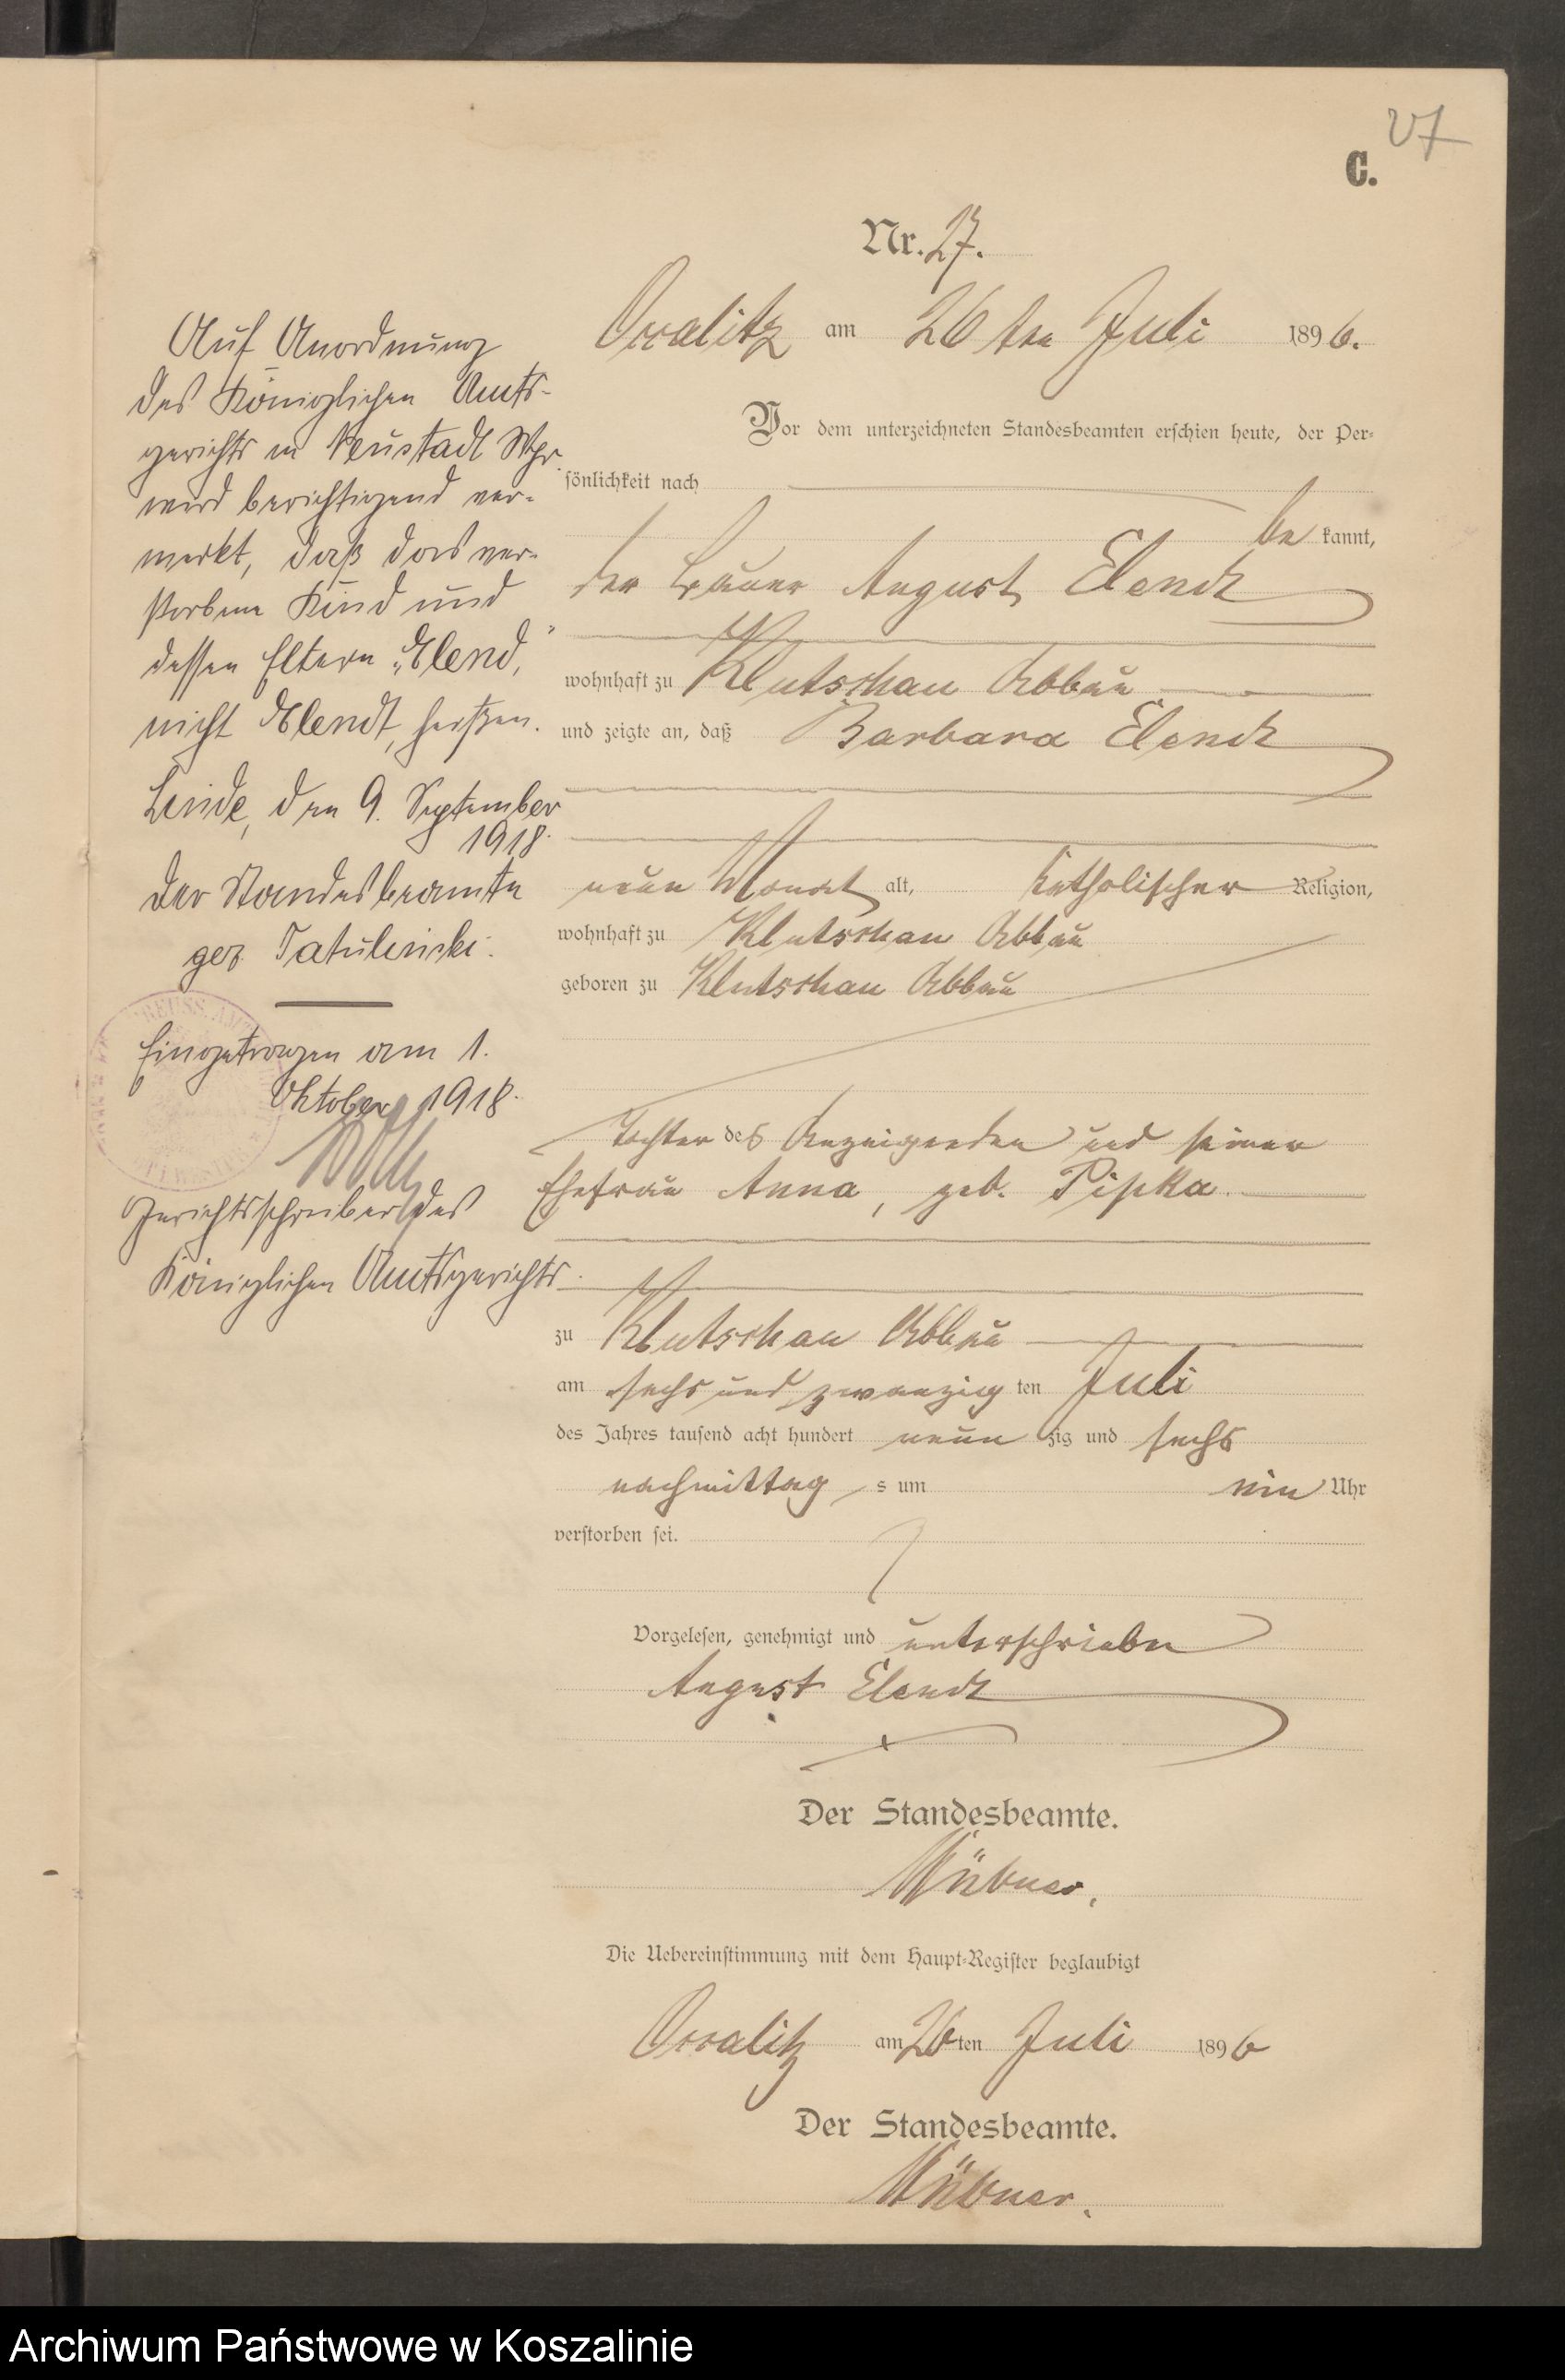 27
C.
Nr. 27.
Occalitz am 26ten Juli 1896.
Vor dem unterzeichneten Standesbeamten erschien heute, der Per-
sönlichkeit nach
bekannt,
der Bauer August Elendt
wohnhaft zu Klutschau Abbau
und zeigte an, daß Barbara Elendt
neun Monat alt, katholischer Religion,
wohnhaft zu Klutschau Abbau
geboren zu Klutschau Abbau
Tochter des Anzeigenden und seiner
Ehefrau Anna, geb. Pipka.
zu Klutschau Abbau
am sechs und zwanzig ten Juli
des Jahres tausend acht hundert neun zig und sechs
nachmittag s um ein Uhr
verstorben sei.
Vorgelesen, genehmigt und unterschrieben
August Elendt
Der Standesbeamte.
Die Uebereinstimmung mit dem Haupt-Register beglaubigt
Occalitz am 26ten Juli 1896
Der Standesbeamte.
Auf Anordnung
des Königlichen Amts-
gerichts in Neustadt Wpr.
wird berichtigend ver-
merkt, daß das ver-
storbene Kind und
dessen Eltern „Elend“,
nicht Elendt, heißen.
Linde, den 9. September
1918.
Der Standesbeamte
gez. Tatulinski.
Eingetragen am 1.
Oktober 1918.
Gerichtsschreiber des
Königlichen Amtsgerichts.
Archiwum Państwowe w Koszalinie